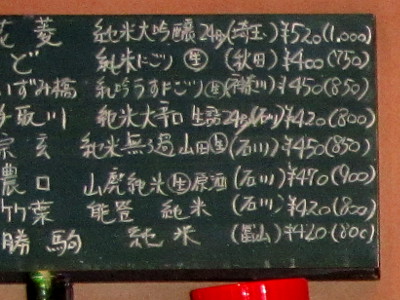 花菱 純米大吟醸 24BY (埼玉) ¥520 (1,000)
ど 純米にごり 生 (秋田) ¥400 (750)
いずみ橋 純吟うすにごり 生 (神奈川) ¥450 (850)
手取川 純米大辛口 生詰 24BY (石川) ¥420 (800)
宗玄 純米無ろ過山田 生 (石川) ¥450 (850)
農口 山廃純米 生 原酒 (石川) ¥470 (900)
竹葉 能登 純米 (石川) ¥420 (800)
勝駒 純米 (富山) ¥420 (800)